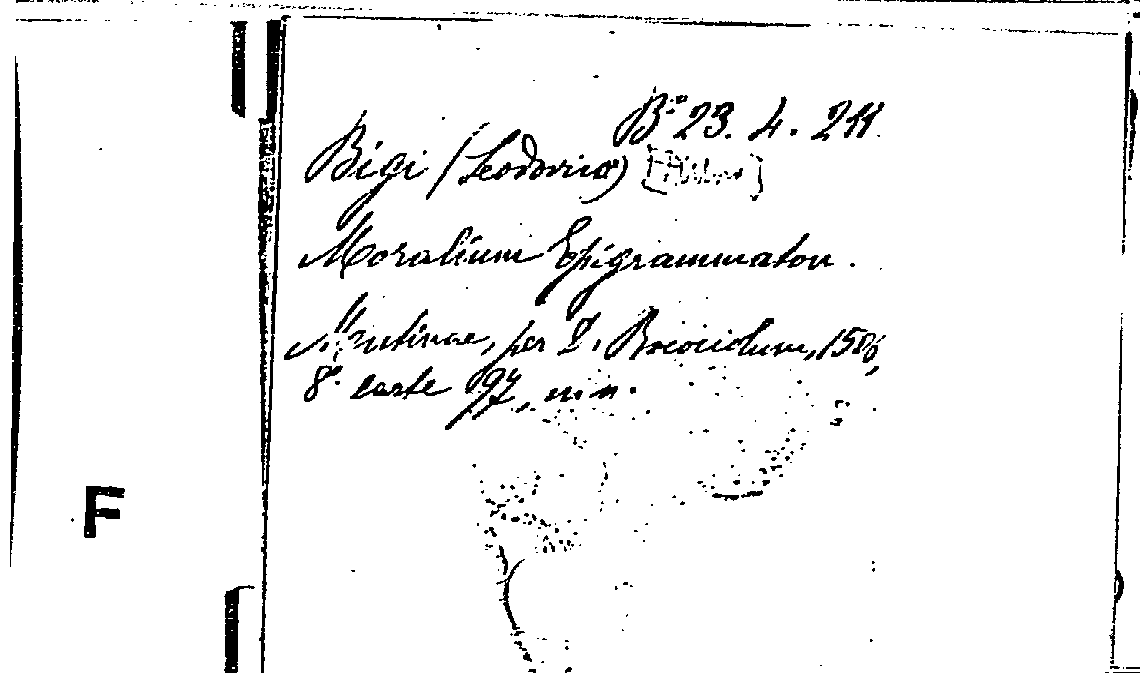 B° 23. 4. 211.
Bigi (Lodovico)
Moralium Epigrammaton.
Mutinae, per D. Rococciolum, 1506,
8°. carte 97, nin.
F